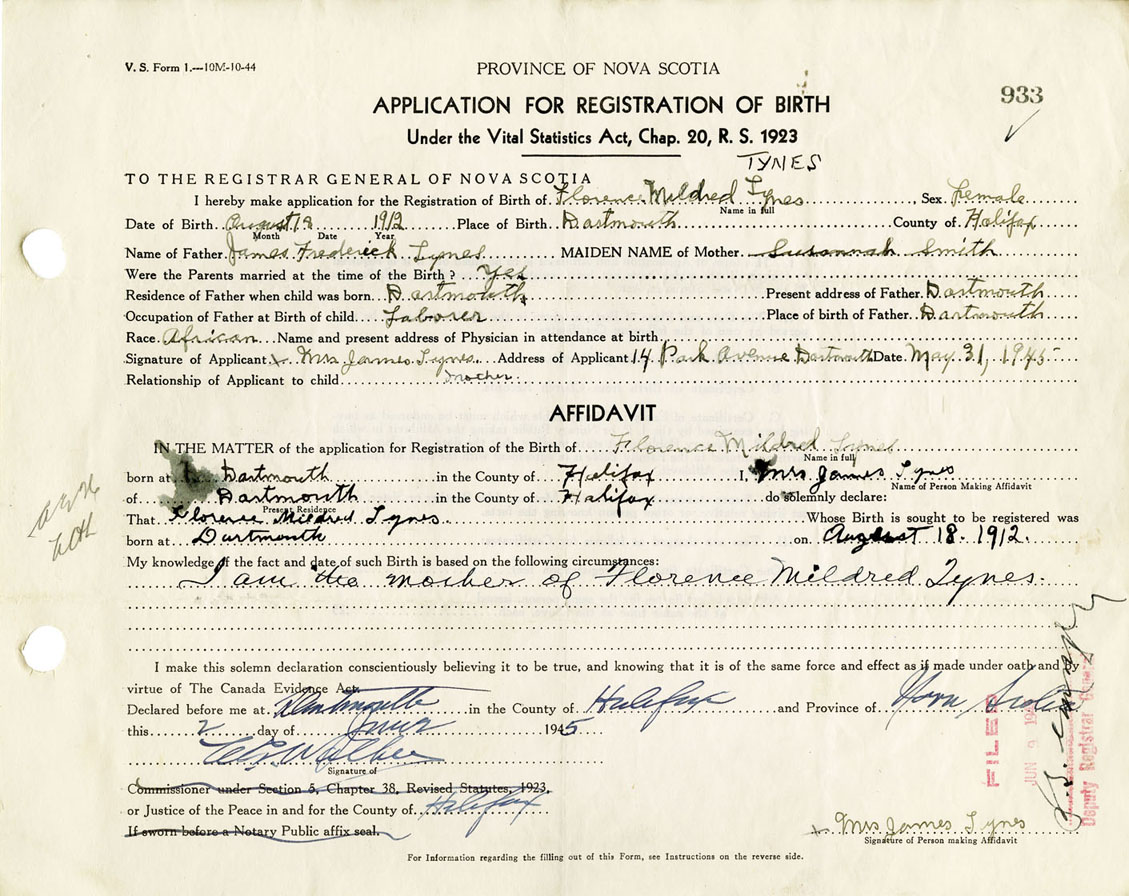 V. S. Form 1.—10M-10-44
PROVINCE OF NOVA SCOTIA
933
APPLICATION FOR REGISTRATION OF BIRTH
Under the Vital Statistics Act, Chap. 20, R. S. 1923
TYNES
TO THE REGISTRAR GENERAL OF NOVA SCOTIA
I hereby make application for the Registration of Birth of Florence Mildred Tynes Sex Female
Name in full
Date of Birth August 18 1912 Place of Birth Dartmouth County of Halifax
Month Date Year
Name of Father James Frederick Tynes MAIDEN NAME of Mother Susannah Smith
Were the Parents married at the time of the Birth ? Yes
Residence of Father when child was born Dartmouth Present address of Father Dartmouth
Occupation of Father at Birth of child Laborer Place of birth of Father Dartmouth
Race African Name and present address of Physician in attendance at birth
Signature of Applicant x Mrs James Tynes Address of Applicant 14 Park Avenue Dartmouth Date May 31, 1945
Relationship of Applicant to child mother
AFFIDAVIT
IN THE MATTER of the application for Registration of the Birth of Florence Mildred Tynes
Name in full
born at Dartmouth in the County of Halifax I, Mrs James Tynes
Name of Person Making Affidavit
of Dartmouth in the County of Halifax do solemnly declare:
Present Residence
That Florence Mildred Tynes Whose Birth is sought to be registered was
born at Dartmouth on August 18. 1912.
My knowledge of the fact and date of such Birth is based on the following circumstances:
I am the mother of Florence Mildred Tynes.
I make this solemn declaration conscientiously believing it to be true, and knowing that it is of the same force and effect as if made under oath and by
virtue of The Canada Evidence Act.
Declared before me at Dartmouth in the County of Halifax and Province of Nova Scotia
this 2 day of June 1945
Signature of
Commissioner under Section 5, Chapter 38, Revised Statutes, 1923,
or Justice of the Peace in and for the County of Halifax
If sworn before a Notary Public affix seal.
x Mrs James Tynes
Signature of Person making Affidavit
For Information regarding the filling out of this Form, see Instructions on the reverse side.
FILED
JUN 9
Deputy Registrar General